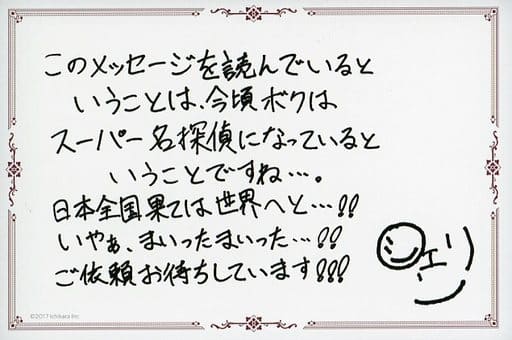 このメッセージを読んでいると
いうことは、今頃ボクは
スーパー名探偵になっていると
いうことですね…。
日本全国果ては世界へと…!!
いやぁ、まいったまいった…!!
ご依頼お待ちしています!!!
エリ
©2017 Ichikara Inc.